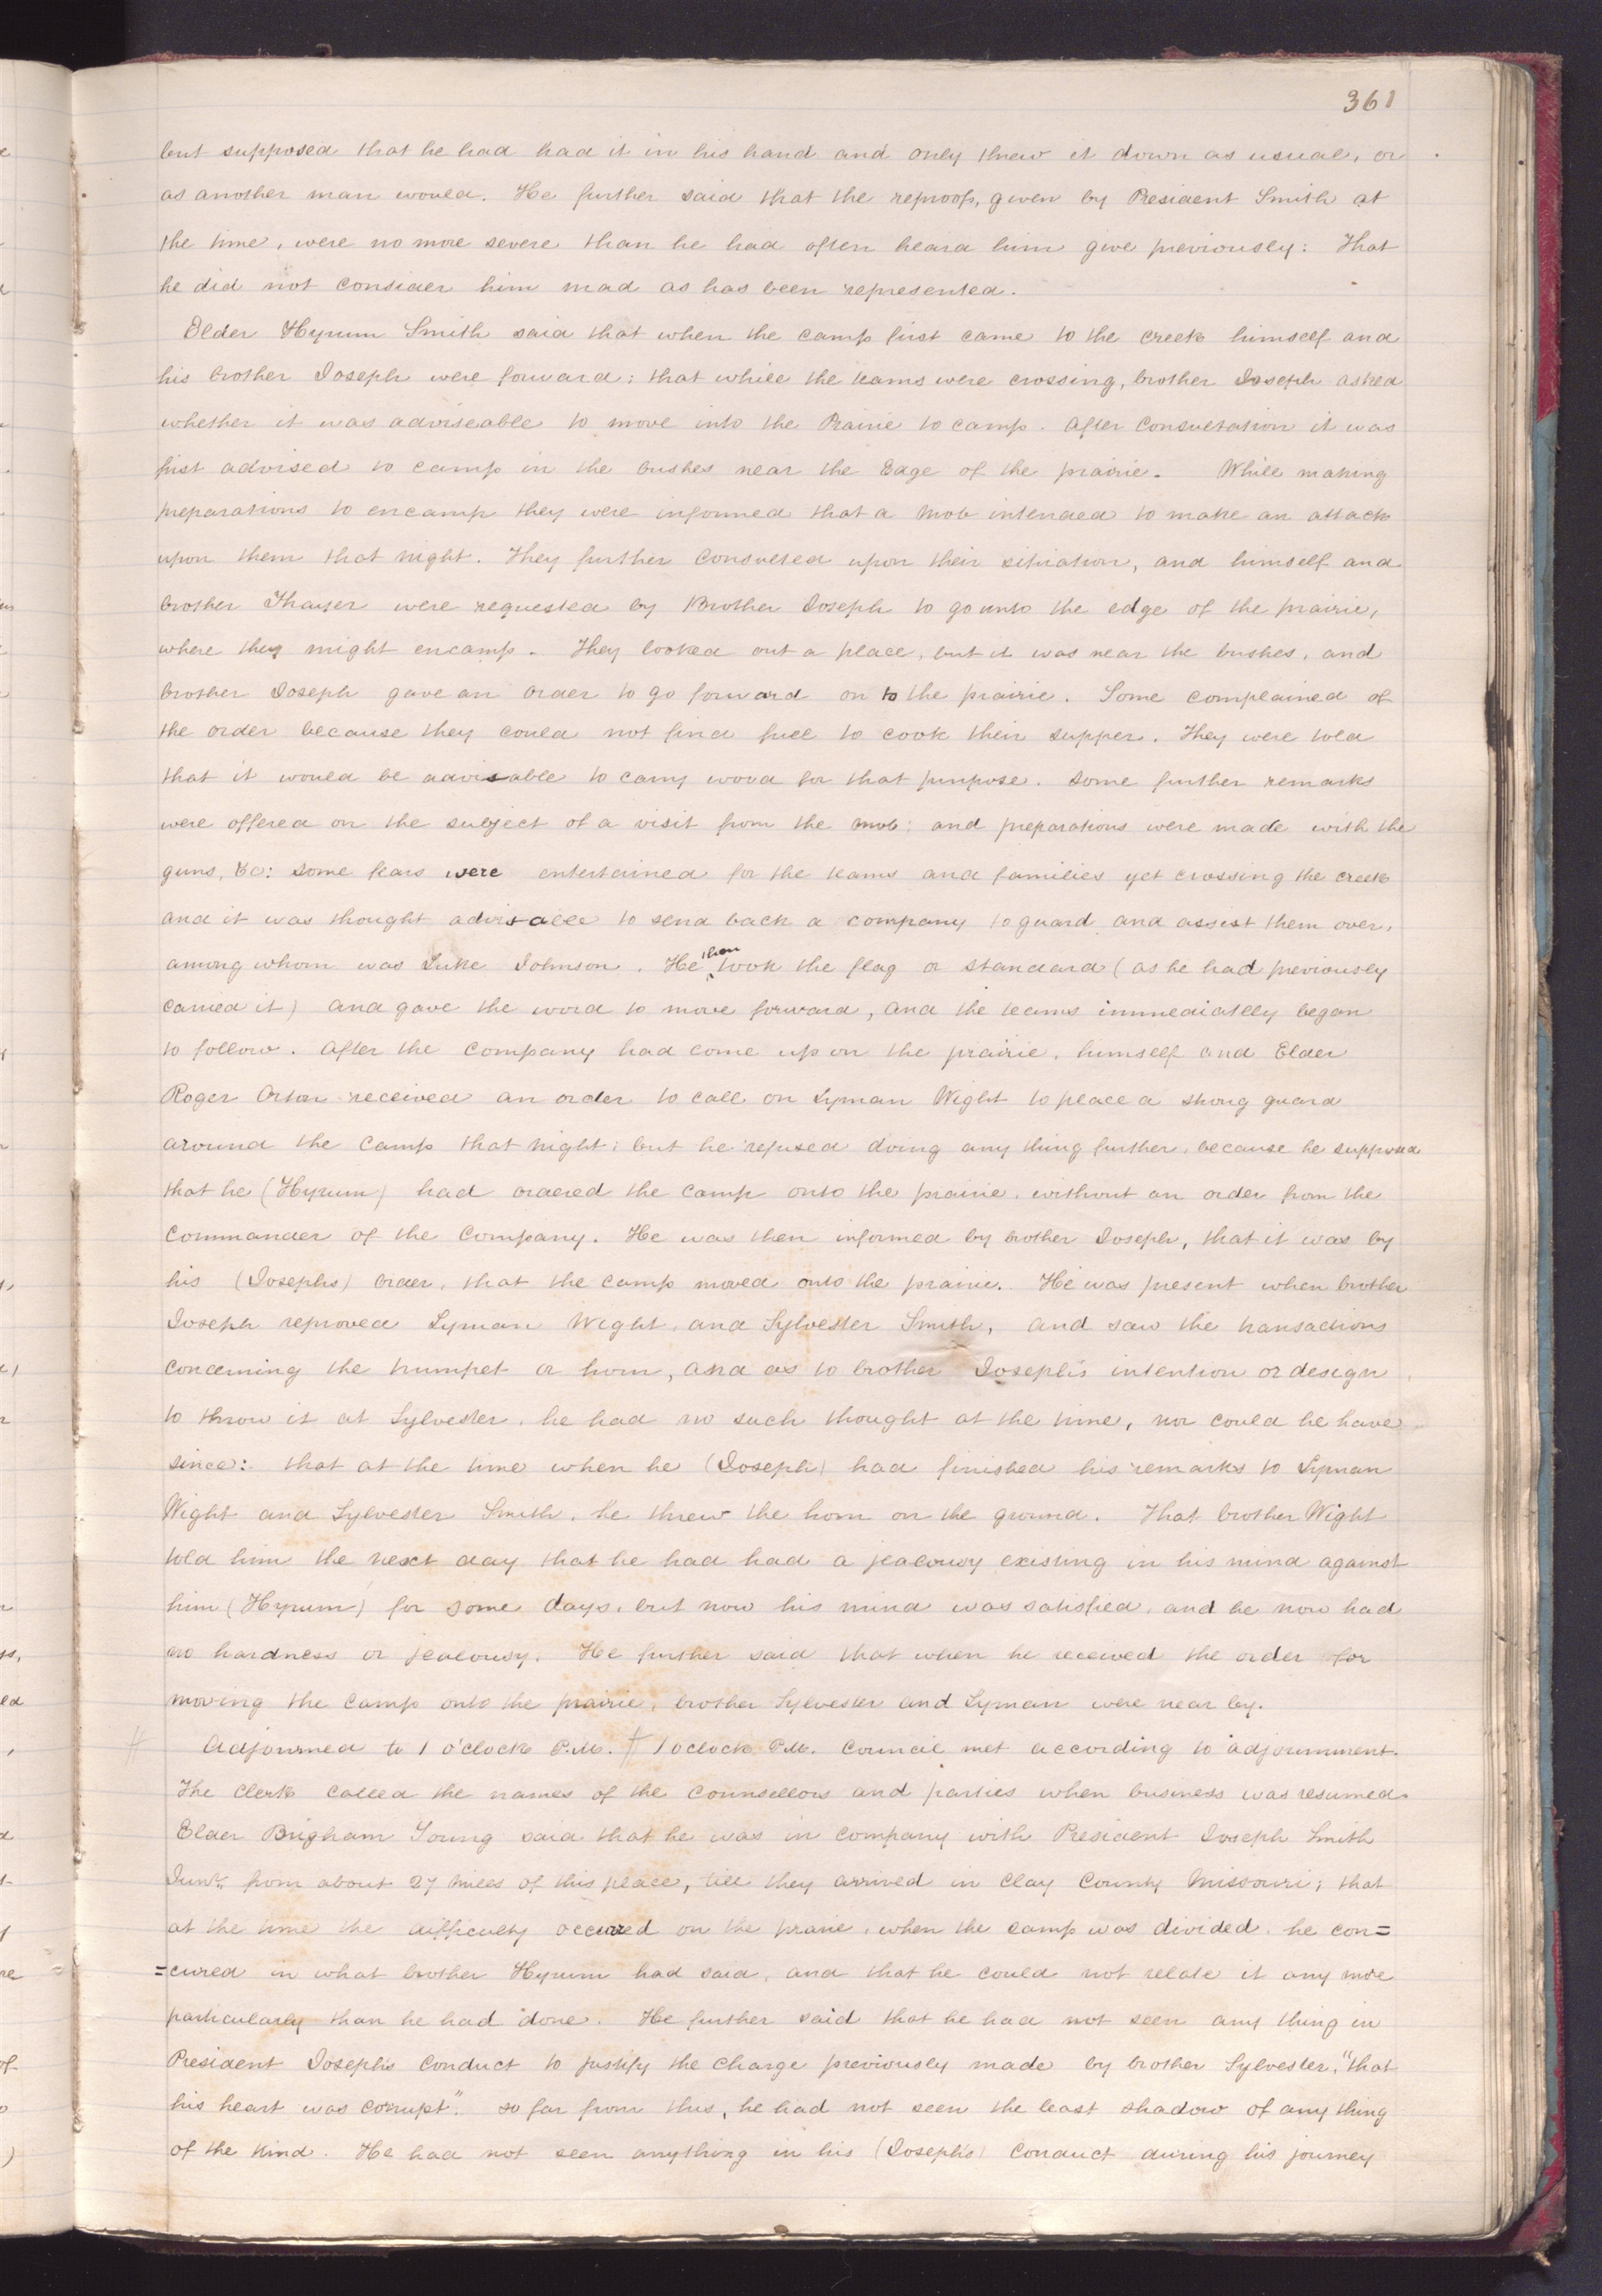 361
but supposed that he had had it in his hand and only threw it down as usual, or
as another man would. He further said that the reproofs, given by President Smith at
the time, were no more severe than he had often heard him give previously: That
he did not consider him mad as has been represented.
Elder Hyrum Smith said that when the camp first came to the creek himself and
his brother Joseph were forward; that while the teams were crossing, brother Joseph asked
whether it was adviseable to move into the Prairie to camp. After Consultation it was
first advised to camp in the bushes near the Edge of the prairie. While making
preparations to encamp they were informed that a Mob intended to make an attack
upon them that night. They further Consulted upon their situation, and himself and
brother Thayer were requested by Brother Joseph to go unto the edge of the prairie,
where they might encamp. They looked out a place, but it was near the bushes, and
brother Joseph gave an order to go forward on to the prairie. Some complained of
the order because they could not find fuel to cook their supper. They were told
that it would be advisable to carry wood for that purpose. Some further remarks
were offered on the subject of a visit from the mob: and preparations were made with the
guns, &c: some fears were entertained for the teams and families yet crossing the creek
and it was thought advisable to send back a company to guard and assist them over,
among whom was Luke Johnson. He then took the flag or standard (as he had previously
carried it) and gave the word to move forward, and the teams immediatlly began
to follow. After the Company had come up on the prairie, himself and Elder
Roger Orton received an order to call on Lyman Wight to place a strong guard
around the Camp that night; but he refused doing any thing further, because he supposed
that he (Hyrum) had ordered the Camp onto the prairie, without an order from the
Commander of the Company. He was then informed by brother Joseph, that it was by
his (Josephs) Order, that the Camp moved onto the prairie. He was present when brother
Joseph reproved Lyman Wight, and Sylvester Smith, and saw the transactions
concerning the trumpet or horn, and as to brother Joseph's intention or design
to throw it at Sylvester, he had no such thought at the time, nor could he have
since: that at the time when he (Joseph) had finished his remarks to Lyman
Wight and Sylvester Smith, he threw the horn on the ground. That brother Wight
told him the next day that he had had a jealousy existing in his mind against
him (Hyrum) for some days, but now his mind was satisfied, and he now had
no hardness or jealousy. He further said that when he received the order for
moving the Camp onto the prairie, brother Sylvester and Lyman were near by.
Adjourned to 1 o'clock P.M. 1 oclock P.M. Council met according to adjournment.
The Clerk Called the names of the Counsellors and parties when business was resumed.
Elder Brigham Young said that he was in company with President Joseph Smith
Junr. from about 27 miles of this place, till they arrived in Clay County Missouri; that
at the time the difficulty occured on the praire, when the camp was divided, he con=
=cured in what brother Hyrum had said, and that he could not relate it any more
particularly than he had done. He further said that he had not seen any thing in
President Joseph's Conduct to justify the Charge previously made by brother Sylvester, "that
his heart was corrupt". So far from this, he had not seen the least shadow of any thing
of the kind. He had not seen anything in his (Joseph's) Conduct during his journey